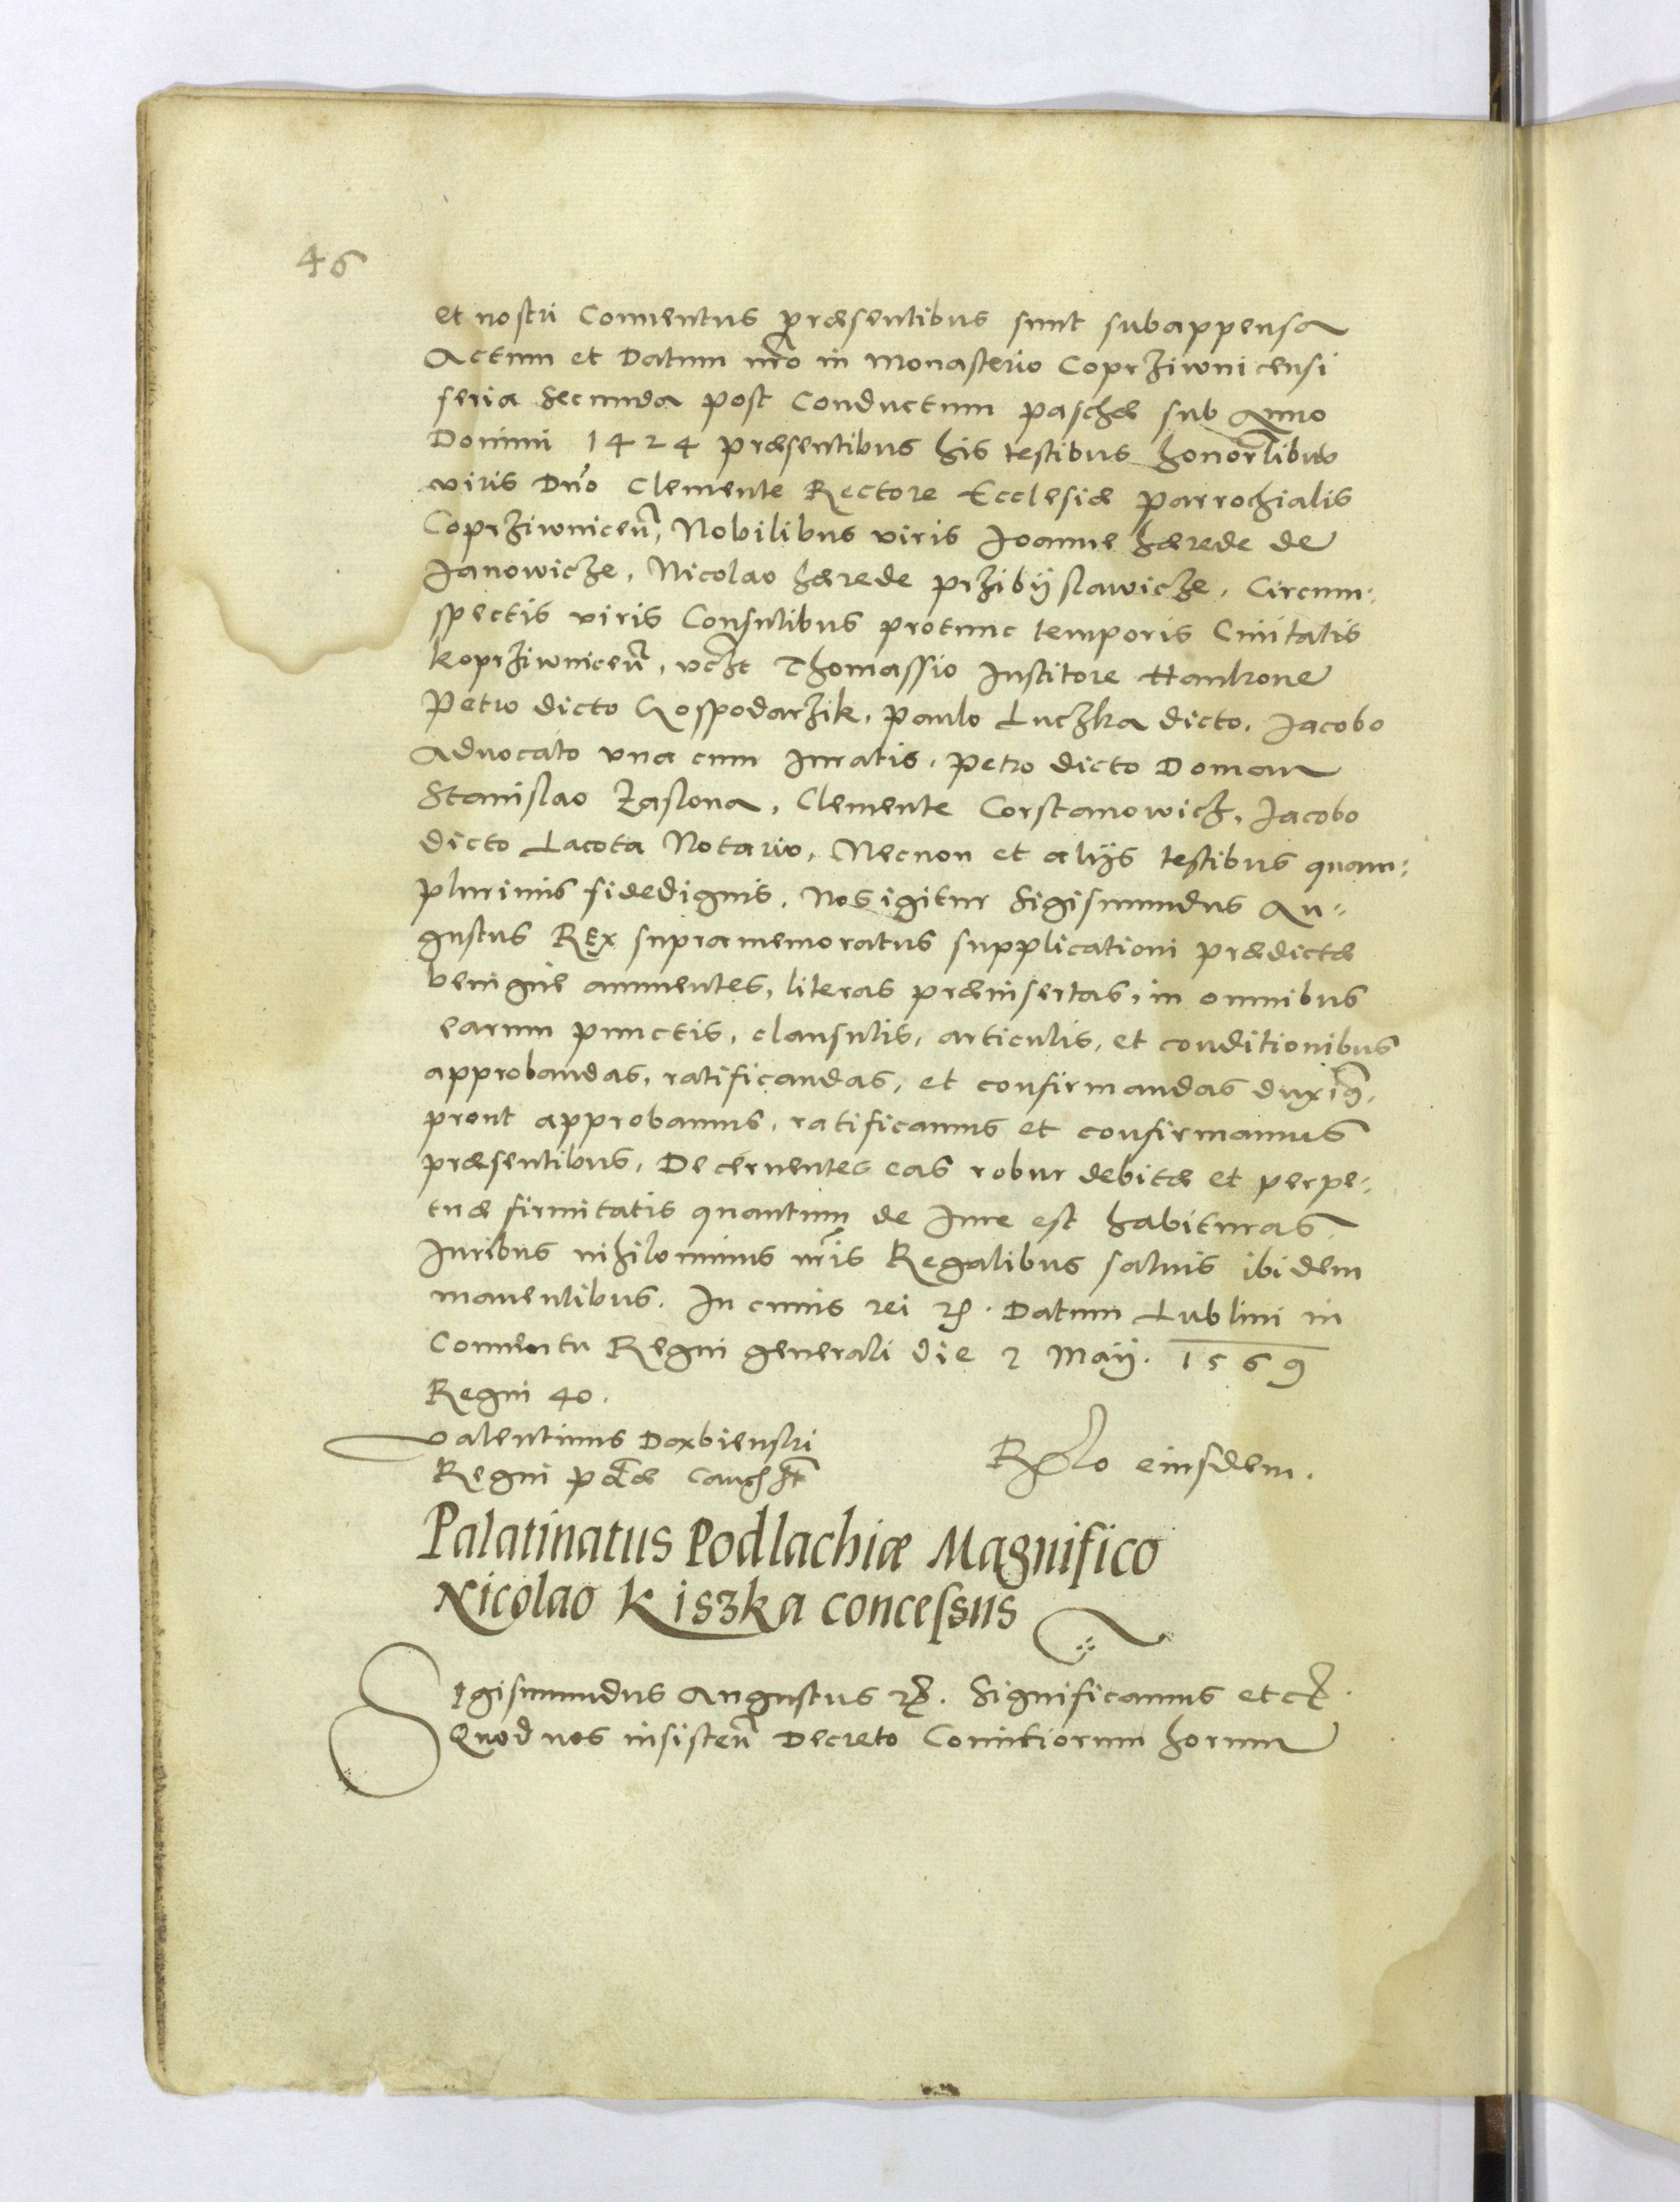 46
et nostri Conuentus præsentibus sunt subappensa
Actum et Datum nr̃o in Monasterio Coprziwnicensi
feria secunda post Conductum paschæ sub Anno
Domini 1424 præsentibus his testibus honorãlibus
viris Dn̄o Clemente Rectore Ecclesiæ parrochialis
Coprziwniceñ, Nobilibus viris Joanne hærede de
Janowicze, Nicolao hærede przibÿslawicze, Circum⸗
spectis viris Consulibus protunc temporis Ciuitatis
koprziwniceñ, vczt Thomassio Institore Hankone
Petro dicto Gospodarzik, Paulo Luczka dicto, Jacobo
Aduocato vna cum Iuratis, Petro dicto Doman
Stanislao Zaslona, Clemente Corstanowicz, Jacobo
dicto Lacota Notario, Necnon et alÿs testibus quam⸗
plurimis fidedignis, Nos igitur Sigismundus Au⸗
gustus REx supramemoratus supplicationi prædictæ
benigne annuentes, literas præinsertas, in omnibus
earum punctis, clausulis, articulis, et conditionibus
approbandas, ratificandas, et confirmandas duxim9,
prout approbamus, ratificamus et confirmamus
præsentibus, Decernentes eas robur debitæ et perpe⸗
tuæ firmitatis quantum de Iure est habituras
Iuribus nihilominus nr̃is Regalibus saluis ibidem
manentibus. In cuius rei ꝛc. Datum Lublini in
Conuentu Regni generali die 2 Maÿ. 1569
Regni 40.
Valentinus Daxbienski
Regni Poł̃æ Canc
Rło eiusdem.
Palatinatus Podlachiæ Magnifico
Nicolao Kiszka concessus
Sigismundus Augustus ꝛc. Significamus etc.
Quod nos insisteñ Decreto Comitiorum horum